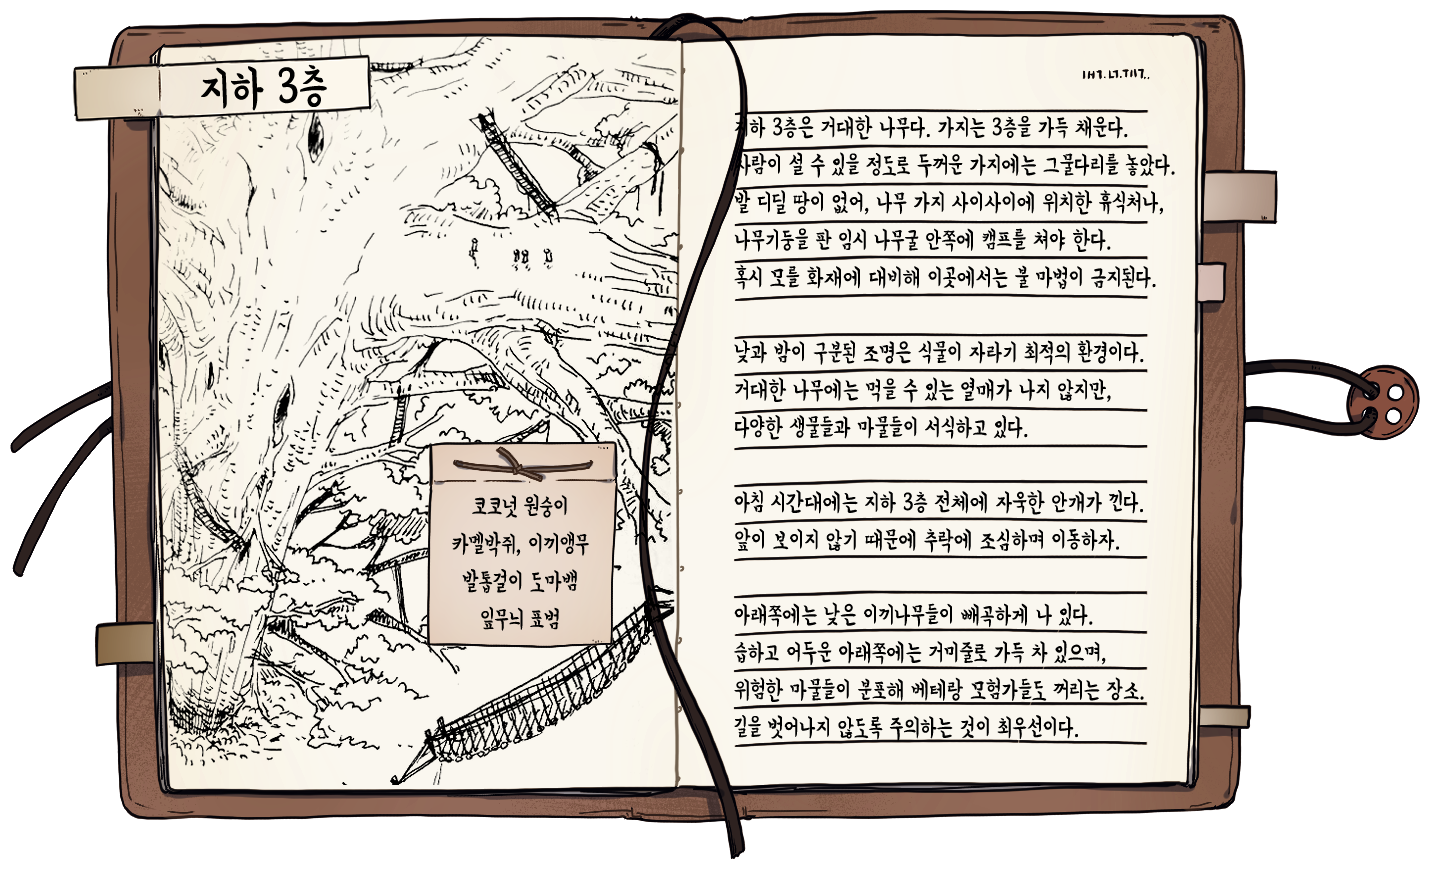 지하 3층
지하 3층은 거대한 나무다. 가지는 3층을 가득 채운다.
사람이 설 수 있을 정도로 두꺼운 가지에는 그물다리를 놓았다.
발 디딜 땅이 없어, 나무 가지 사이사이에 위치한 휴식처나,
나무기둥을 판 임시 나무굴 안쪽에 캠프를 쳐야 한다.
혹시 모를 화재에 대비해 이곳에서는 불 마법이 금지된다.
낮과 밤이 구분된 조명은 식물이 자라기 최적의 환경이다.
거대한 나무에는 먹을 수 있는 열매가 나지 않지만,
다양한 생물들과 마물들이 서식하고 있다.
아침 시간대에는 지하 3층 전체에 자욱한 안개가 낀다.
앞이 보이지 않기 때문에 추락에 조심하며 이동하자.
아래쪽에는 낮은 이끼나무들이 빼곡하게 나 있다.
습하고 어두운 아래쪽에는 거미줄로 가득 차 있으며,
위험한 마물들이 분포해 베테랑 모험가들도 꺼리는 장소.
길을 벗어나지 않도록 주의하는 것이 최우선이다.
코코넛 원숭이
카멜박쥐, 이끼앵무
발톱걸이 도마뱀
잎무늬 표범